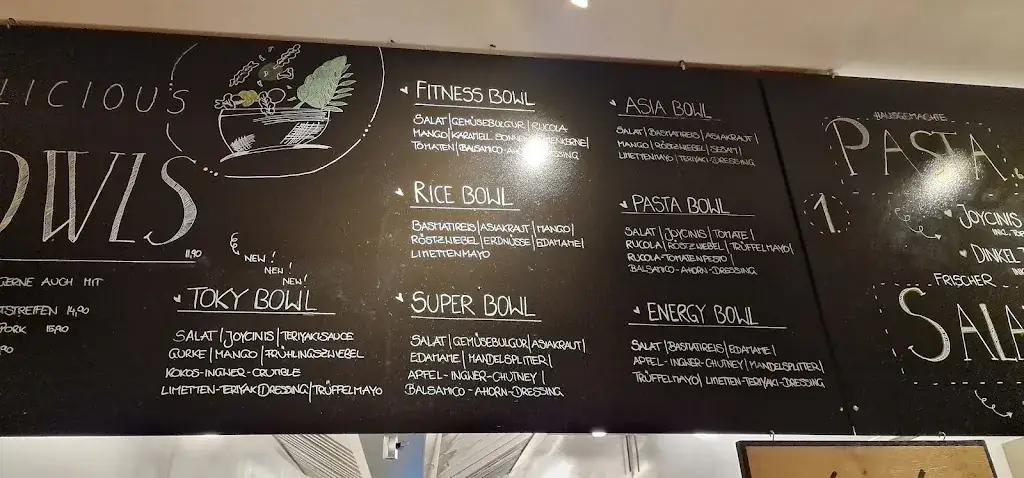 LICIOUS
OWLS
11,90
GERNE AUCH MIT
TSTREIFEN 14,90
PORK 15,90
90
NEW!
NEW!
NEW!
TOKY BOWL
SALAT | JOYCINIS | TERIYAKISAUCE
GURKE | MANGO | FRÜHLINGSZWIEBEL
KOKOS-INGWER-CRUMBLE
LIMETTEN-TERIYAKI DRESSING | TRÜFFELMAYO
FITNESS BOWL
SALAT | GEMÜSEBULGUR | RUCOLA
MANGO | KARAMELL SONNENBLUMENKERNE |
TOMATEN | BALSAMICO-AHORN-DRESSING
RICE BOWL
BASMATIREIS | ASIAKRAUT | MANGO |
RÖSTZWIEBEL | ERDNÜSSE | EDAMAME |
LIMETTENMAYO
SUPER BOWL
SALAT | GEMÜSEBULGUR | ASIAKRAUT |
EDAMAME | MANDELSPLITTER |
APFEL-INGWER-CHUTNEY |
BALSAMICO-AHORN-DRESSING
ASIA BOWL
SALAT | BASMATIREIS | ASIAKRAUT |
MANGO | RÖSTZWIEBEL | SESAM |
LIMETTENMAYO | TERIYAKI-DRESSING
PASTA BOWL
SALAT | JOYCINIS | TOMATE |
RUCOLA | RÖSTZWIEBEL | TRÜFFELMAYO |
RUCOLA-TOMATENPESTO |
BALSAMICO-AHORN-DRESSING
ENERGY BOWL
SALAT | BASMATIREIS | EDAMAME |
APFEL-INGWER-CHUTNEY | MANDELSPLITTER |
TRÜFFELMAYO | LIMETTEN-TERIYAKI-DRESSING
HAUSGEMACHTE
PASTA
1
JOYCINIS
INKL.
DINKEL
FRISCHER
SALA